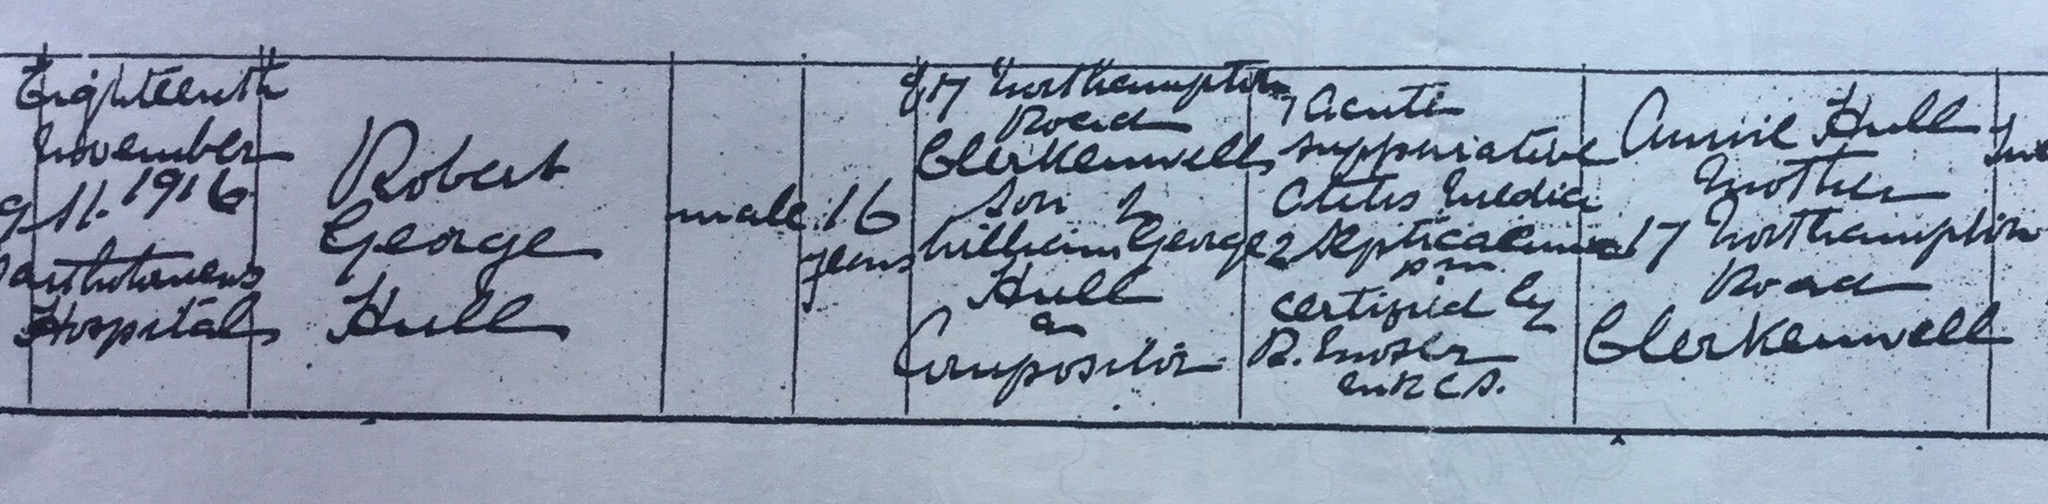 Eighteenth
November
1916
Bartholomews
Hospital
Robert
George
Hull
male
16
years
of 17 Northampton
Road
Clerkenwell
Son of
William George
Hull
a
Compositor
1 Acute
suppurative
Otitis Media
2 Septicaemia
pm
Certified by
R.
MRCS.
Annie Hull
Mother
17 Northampton
Road
Clerkenwell